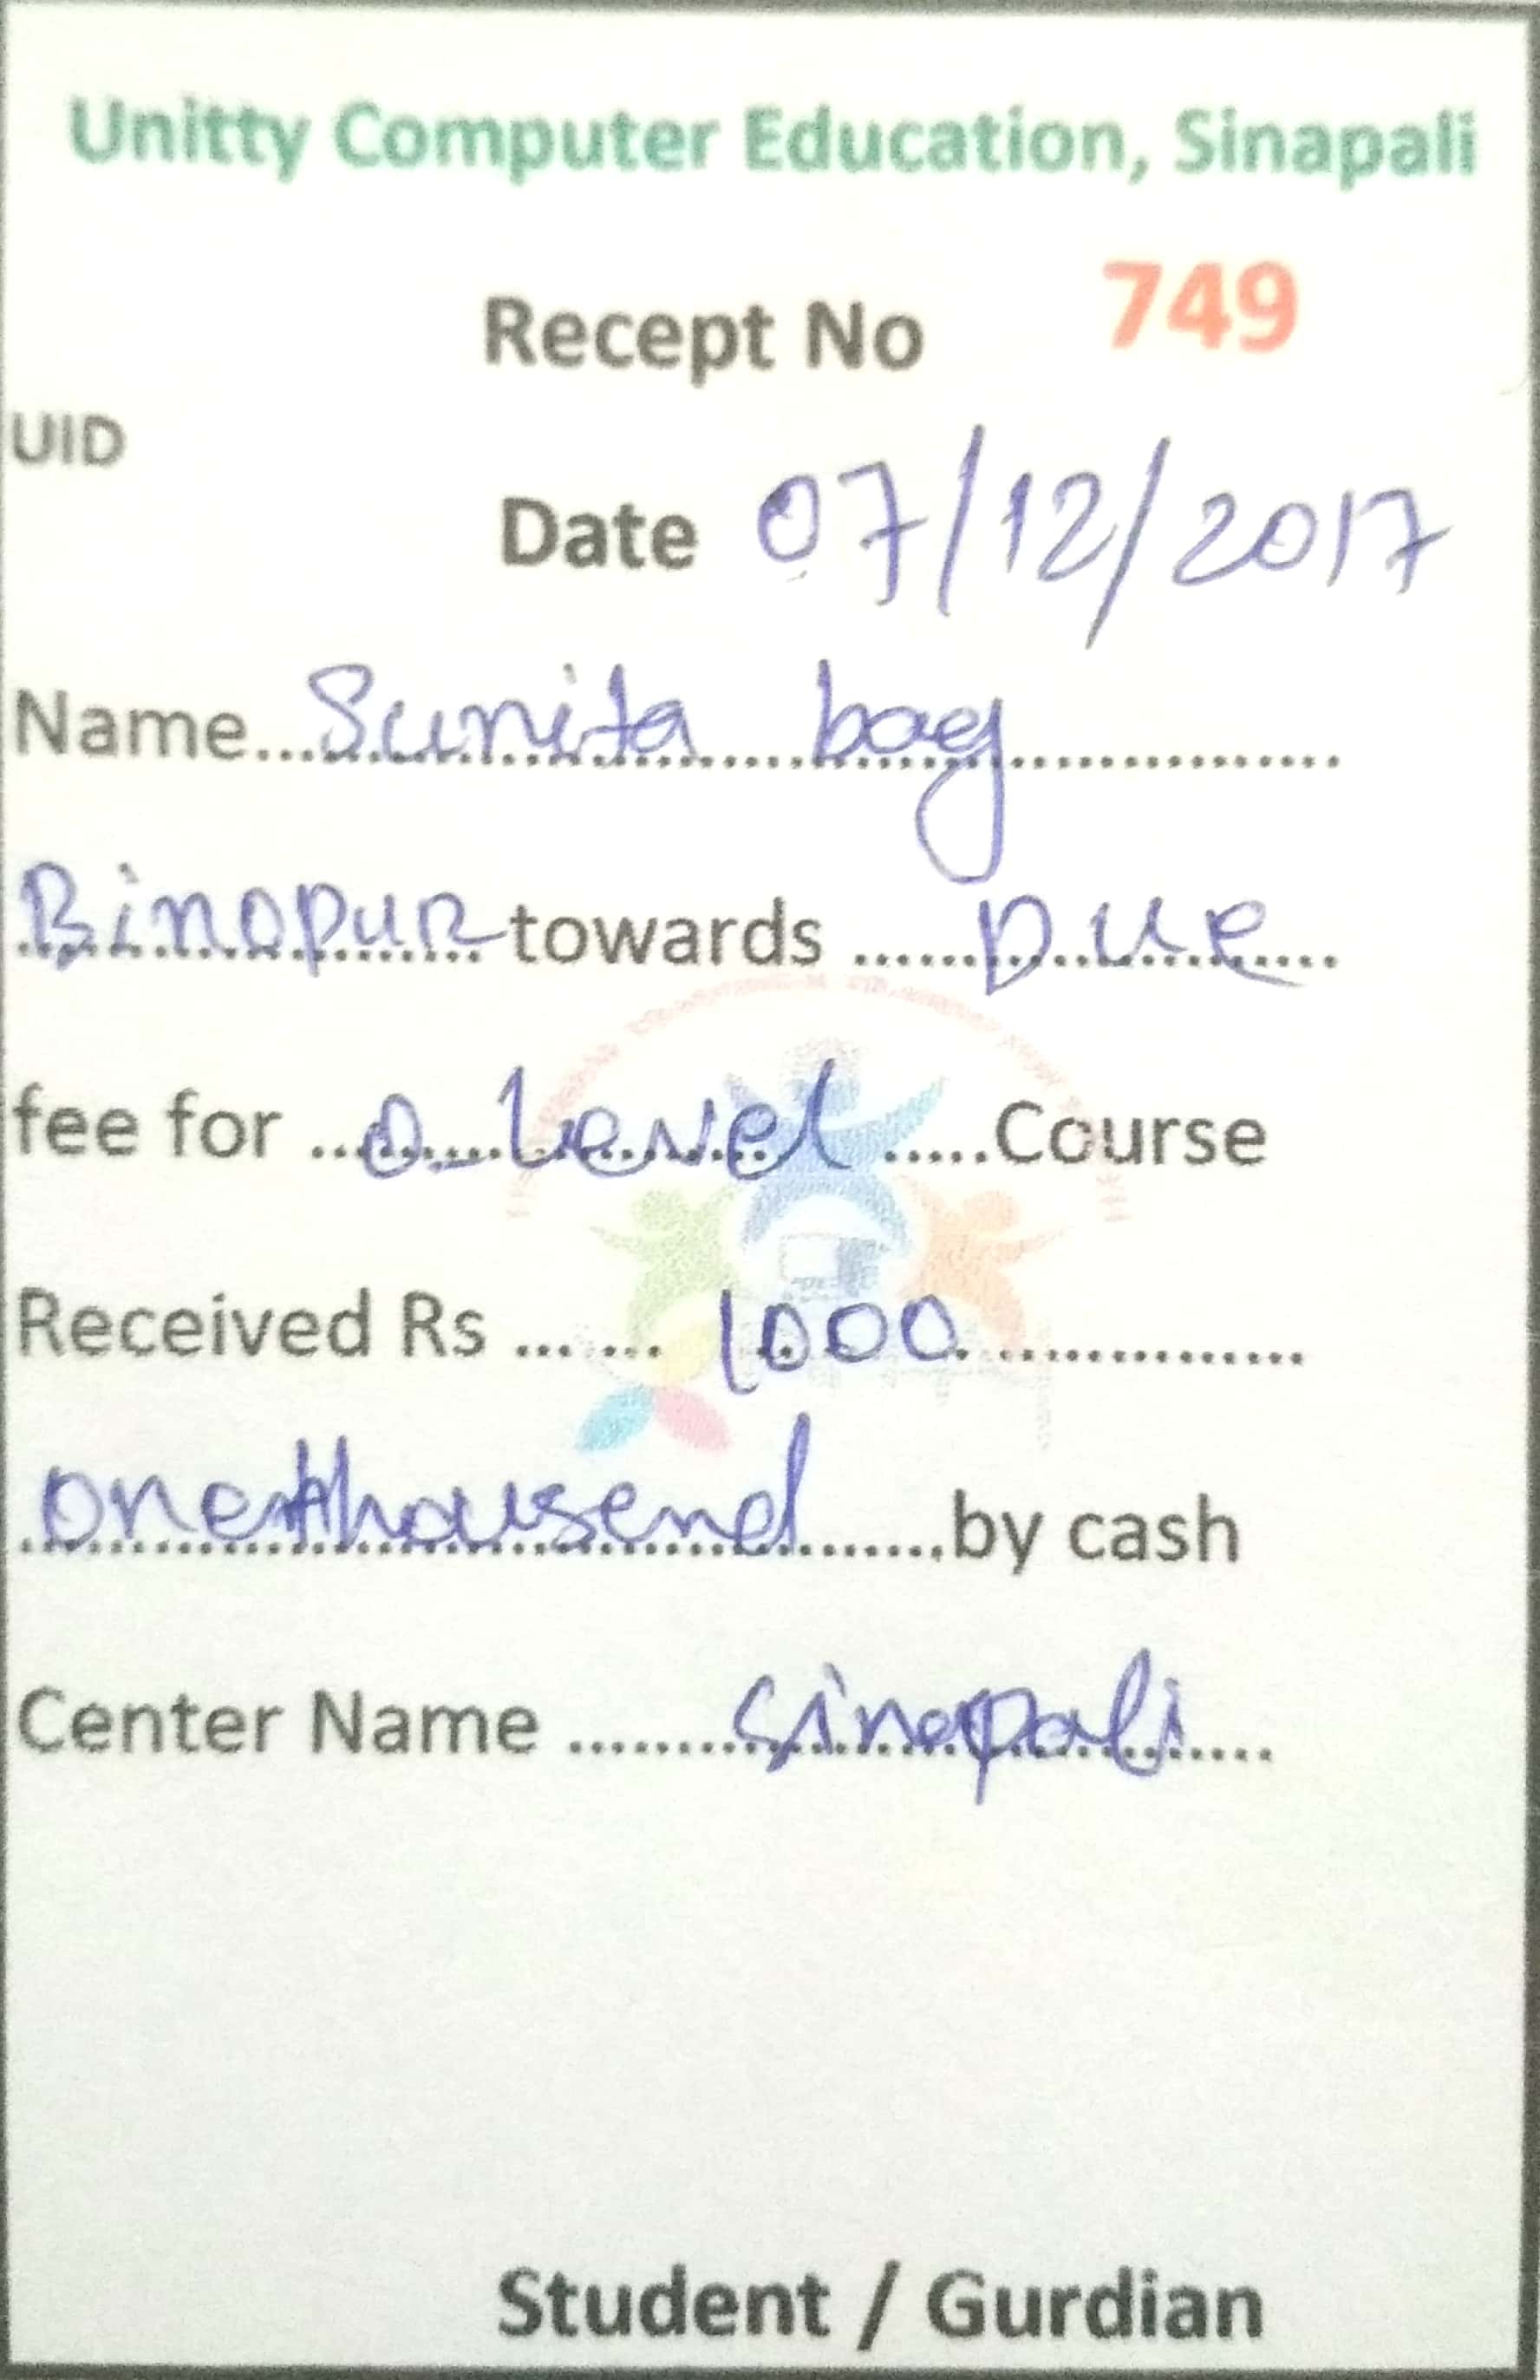 Unitty Computer Education, Sinapali
Recept No 749
UID
Date 07/12/2017
Name...Sunita bag...............
Binapur towards ......Due......
fee for ...O-Level.....Course
Received Rs ... ... 1000 ...............
one thousend........by cash
Center Name ........Sinapali....
Student / Gurdian